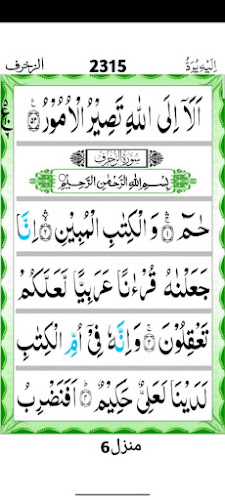 الزخرف 2315 اِلَیْهِ یُرَدُّ
اَلَاۤ اِلَی اللّٰهِ تَصِیْرُ الْاُمُوْرُ ۝۵۳
سُوْرَةُ الزُّخْرُفِ
بِسْمِ اللّٰهِ الرَّحْمٰنِ الرَّحِیْمِ
حٰمٓ ۝۱ وَ الْكِتٰبِ الْمُبِیْنِ ۝۲ اِنَّا
جَعَلْنٰهُ قُرْءٰنًا عَرَبِیًّا لَّعَلَّكُمْ
تَعْقِلُوْنَ ۝۳ وَ اِنَّهٗ فِیْۤ اُمِّ الْكِتٰبِ
لَدَیْنَا لَعَلِیٌّ حَكِیْمٌ ۝۴ اَفَنَضْرِبُ
منزل6